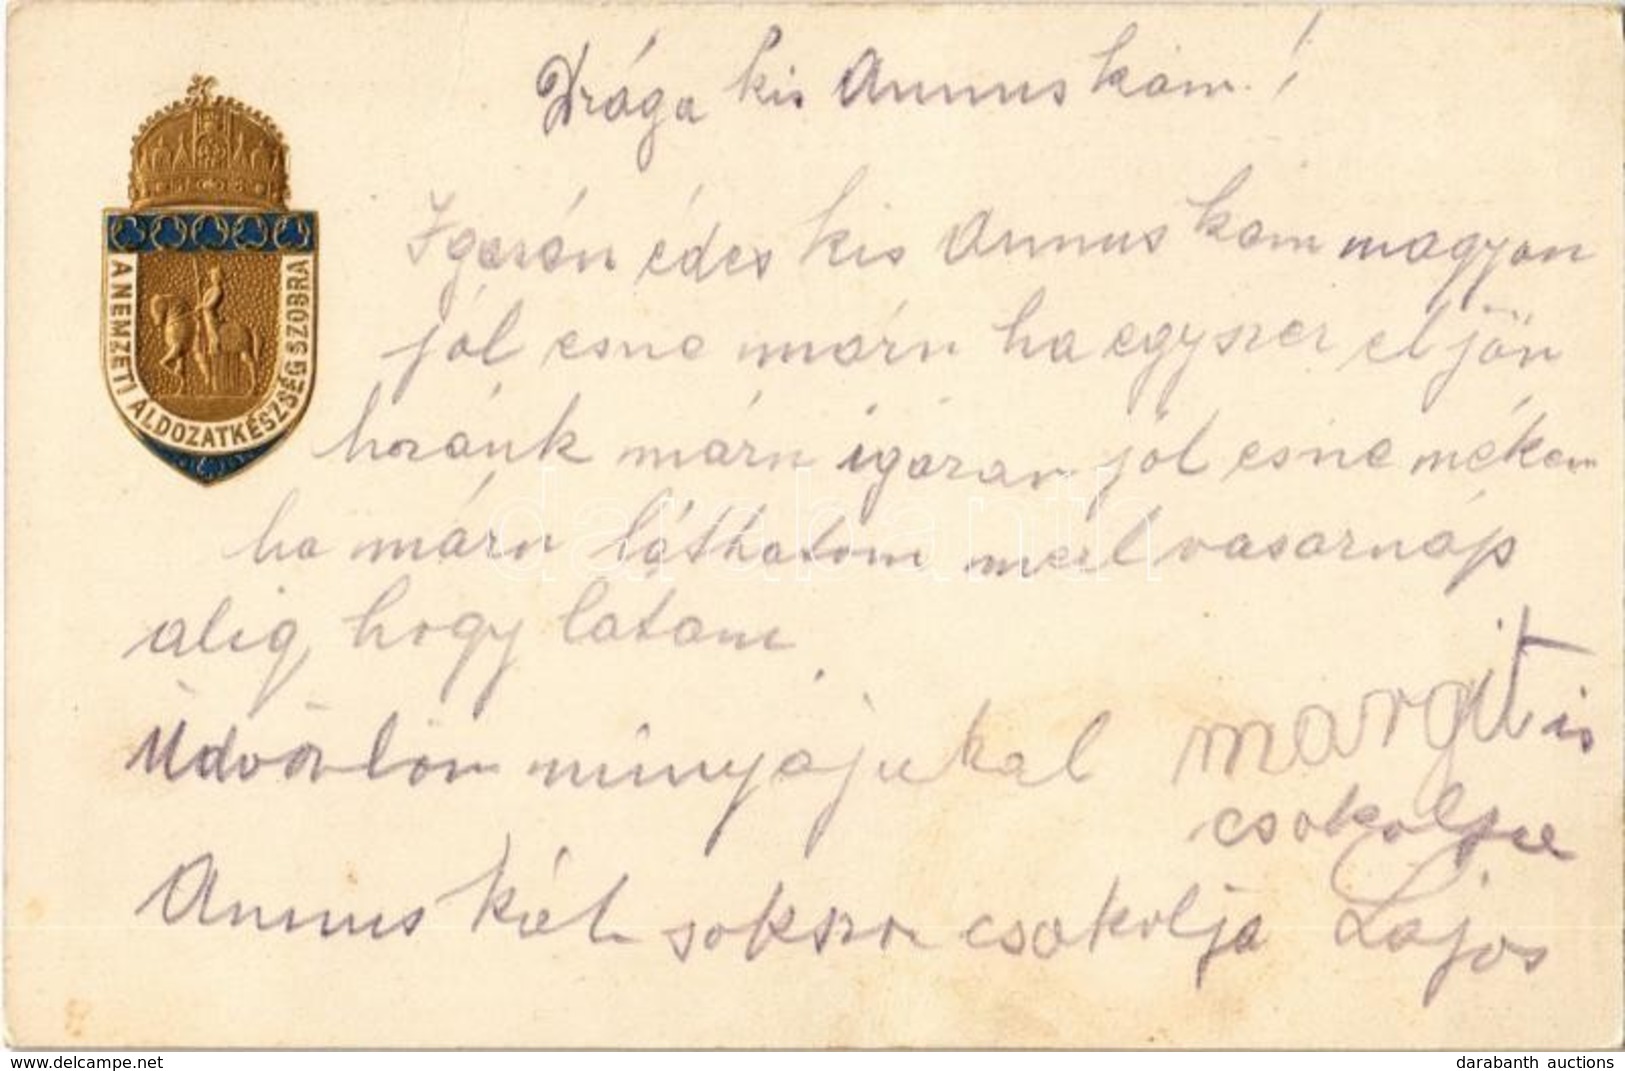 Drága kis Annuskám!
A NEMZETI ÁLDOZATKÉSZSÉG SZOBRA
Igazán édes kis Annuskam magyon
jól esne márn ha egyszer el jön
hozánk márn igazan jól esne nékem
ha márn láthatom merl vasarnáp
alig, hogy latam
Üdvözlöm minyájukal margit is
csokolja
Annuskát sokszor csokolja Lajos
darabanth
www.delcampe.net
darabanth auctions